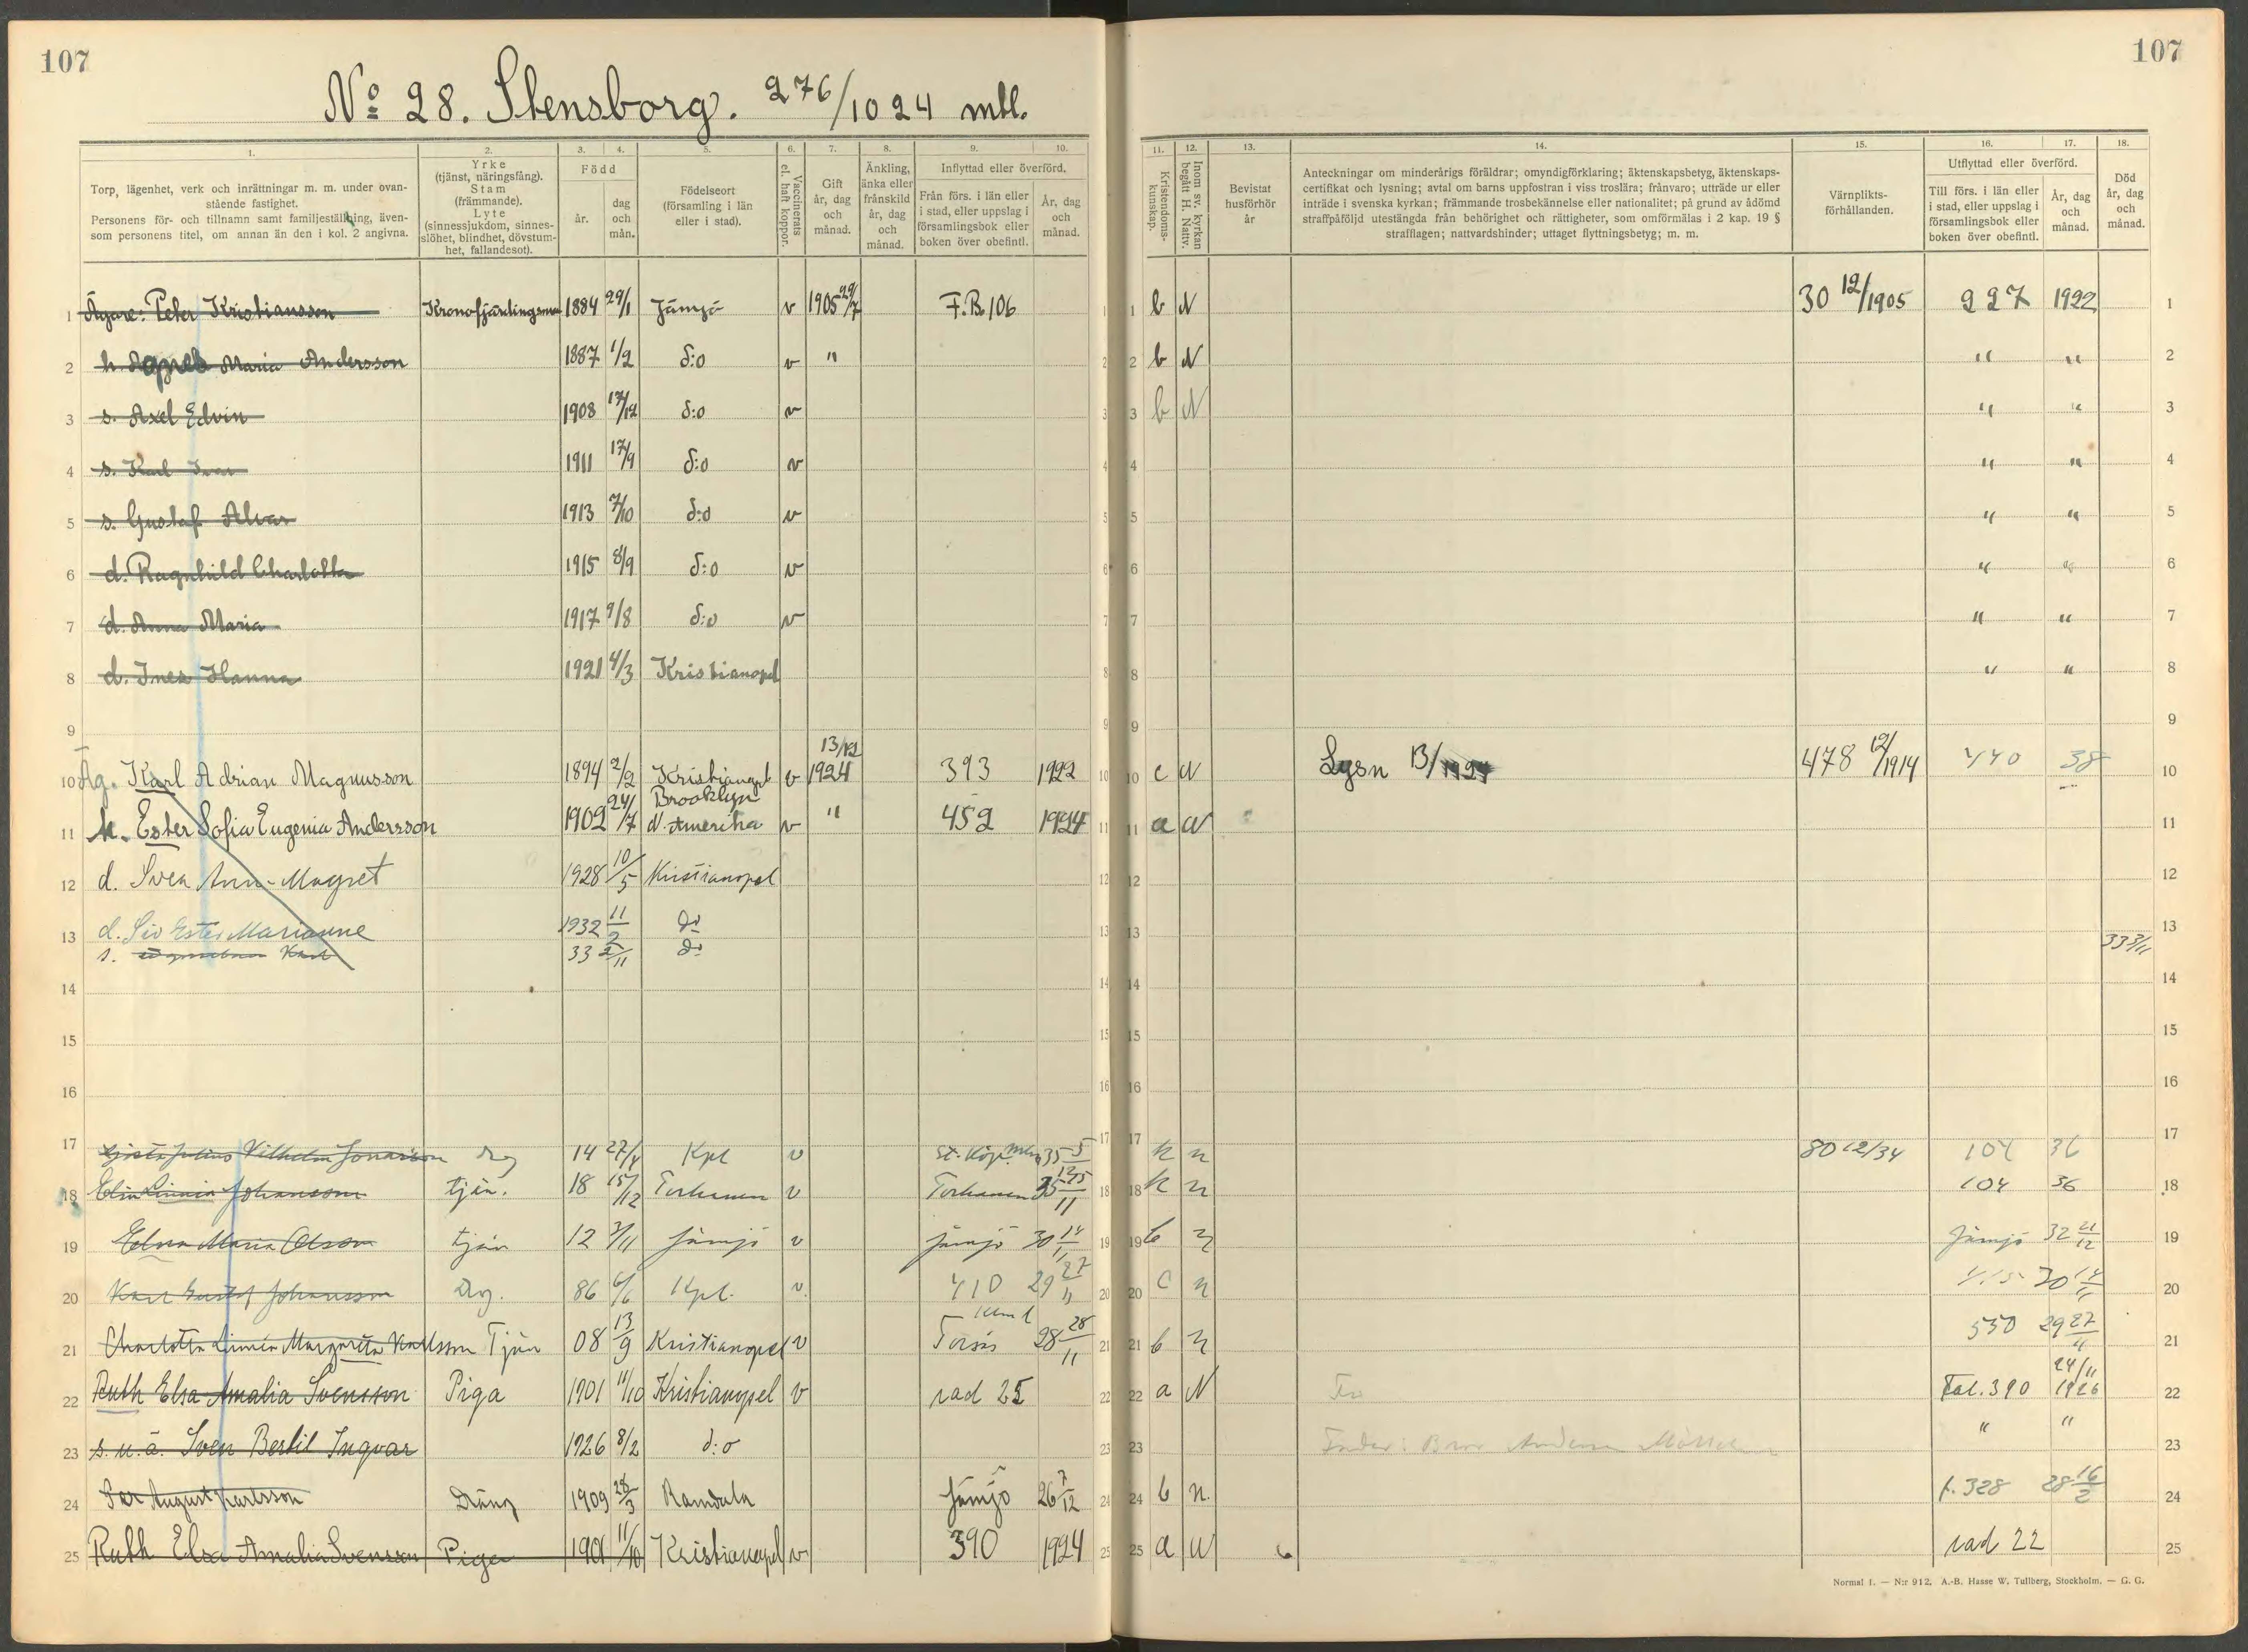 107
107
No 28. Stensborg. 276/1024 mtl.
1.
Torp, lägenhet, verk och inrättningar m. m. under ovan-
stående fastighet.
Personens för- och tillnamn samt familjeställning, även-
som personens titel, om annan än den i kol. 2 angivna.
2.
Yrke
(tjänst, näringsfång).
Stam
(främmande).
Lyte
(sinnessjukdom, sinnes-
slöhet, blindhet, dövstum-
het, fallandesot).
3.
4.
Född
år.
dag
och
mån.
5.
Födelseort
(församling i län
eller i stad).
6.
Vaccinerats
el. haft koppor.
7.
Gift
år, dag
och
månad.
8.
Änkling,
änka eller
frånskild
år, dag
och
månad.
9.
10.
Inflyttad eller överförd.
Från förs. i län eller
i stad, eller uppslag i
församlingsbok eller
boken över obefintl.
År, dag
och
månad.
11.
Kristendoms-
kunskap.
12.
Inom sv. kyrkan
begått H. Nattv.
13.
Bevistat
husförhör
år
14.
Anteckningar om minderårigs föräldrar; omyndigförklaring; äktenskapsbetyg, äktenskaps-
certifikat och lysning; avtal om barns uppfostran i viss troslära; frånvaro; utträde ur eller
inträde i svenska kyrkan; främmande trosbekännelse eller nationalitet; på grund av ådömd
straffpåföljd utestängda från behörighet och rättigheter, som omförmälas i 2 kap. 19 §
strafflagen; nattvardshinder; uttaget flyttningsbetyg; m. m.
15.
Värnplikts-
förhållanden.
16.
17.
Utflyttad eller överförd.
Till förs. i län eller
i stad, eller uppslag i
församlingsbok eller
boken över obefintl.
År, dag
och
månad.
18.
Död
år, dag
och
månad.
1 Ägare: Peter Kristiansson Kronofjärdingsman 1884 29/1 Jämjö v 1905 29/7 F.B. 106 1 1 b N 30 12/1905 227 1922 1
2 h. Agnes Maria Andersson 1887 1/2 d:o v " 2 2 b N " " 2
3 s. Axel Edvin 1908 17/12 d:o v 3 3 b N " " 3
4 s. Karl Ivar 1911 17/9 d:o v 4 4 " " 4
5 s. Gustaf Alvar 1913 7/10 d:o v 5 5 " " 5
6 d. Ragnhild Charlotta 1915 8/9 d:o v 6 6 " " 6
7 d. Anna Maria 1917 9/8 d:o v 7 7 " " 7
8 d. Inez Hanna 1921 4/3 Kristianopel 8 8 " " 8
9 9 9 9
10 Äg. Karl Adrian Magnusson 1894 2/2 Kristianopel v 13/12 1924 393 1922 10 10 c N Lysn 13/ 478 12/1914 440 38 10
11 h. Ester Sofia Eugenia Andersson 1902 24/7 Brooklyn N. Amerika v " 452 1924 11 11 a N 11
12 d. Svea Ann-Magret 1928 10/5 Kristianopel 12 12 12
13 d. Siv Ester Marianne 1932 11/2 do 13 13 13
s. Karl 33 2/11 do 33 3/11
14 14 14 14
15 15 15 15
16 16 16 16
17 Gösta Julius Vilhelm Jonasson Drg 14 27/4 Kpl v 35 17 17 n 80 12/34 104 36 17
18 Elin Linnea Johansson tjän. 18 15/12 Torhamn v Torhamn 35 18 18 n 104 36 18
19 Edna Maria Olsson tjän 12 3/11 Jämjö v Jämjö 30 14/11 19 19 b n Jämjö 32 21/12 19
20 Karl Gustaf Johansson Drg. 86 6/6 Kpl. v. 410 29 27/11 20 20 c n 30 14/11 20
21 Charlotta Linnéa Margareta Karlsson Tjän 08 13/9 Kristianopel v Torsås Klm l 28 28/11 21 21 b n 530 29 27/11 21
22 Ruth Elsa Amalia Svensson Piga 1901 11/10 Kristianopel v rad 25 22 22 a N Fol. 390 24/11 1926 22
23 s. u. ä. Sven Bertil Ingvar 1926 8/2 d:o 23 23 Fader: " " 23
24 Per August Karlsson Dräng 1909 28/3 Ramdala Jämjö 26 7/12 24 24 b n. f. 328 28 16/2 24
25 Ruth Elsa Amalia Svensson Piga 1901 11/10 Kristianopel v 390 1924 25 25 a N rad 22 25
Normal 1. — N:r 912. A.-B. Hasse W. Tullberg, Stockholm. — G. G.